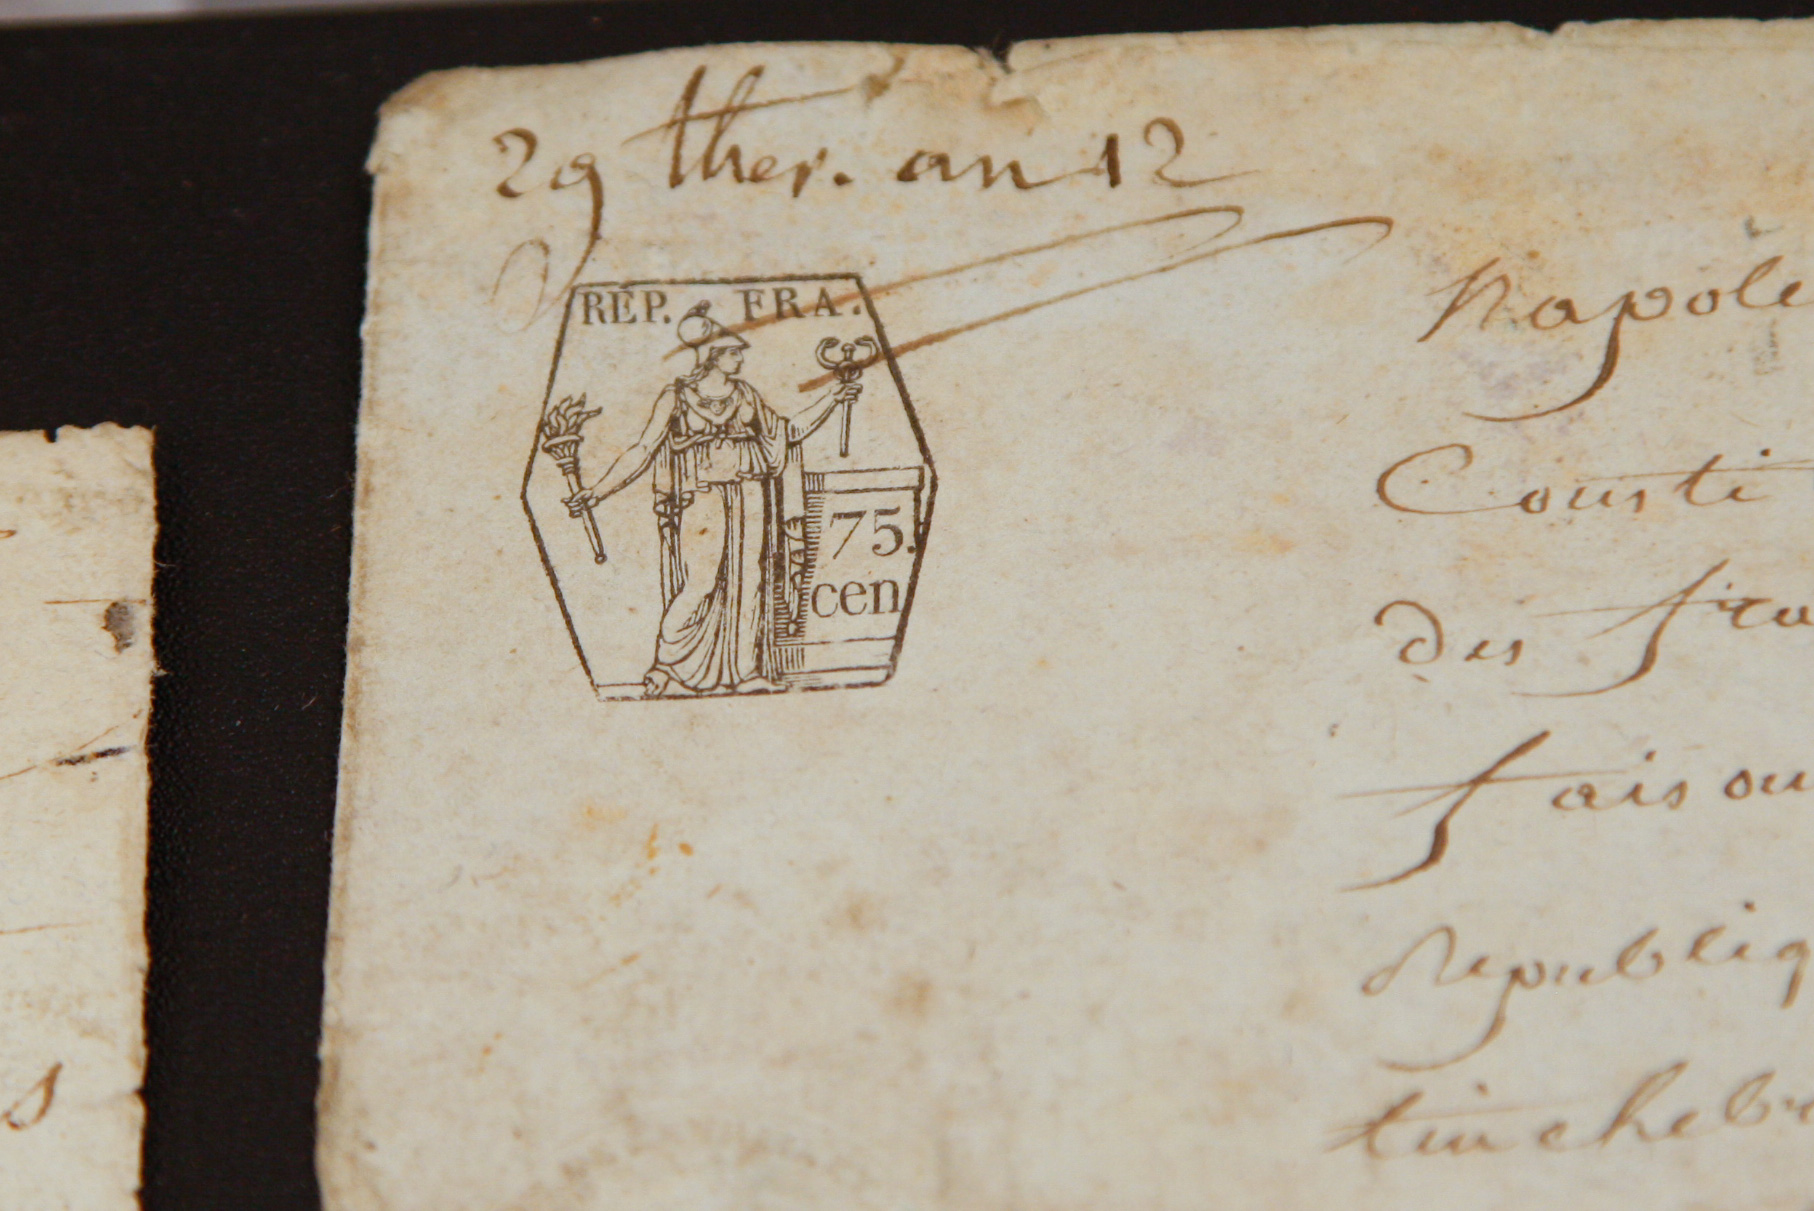 29 ther. an 12
REP. FRA.
75.
cen
Napole
Consti
des fra
fais ou
Republiq
tinchebr
s